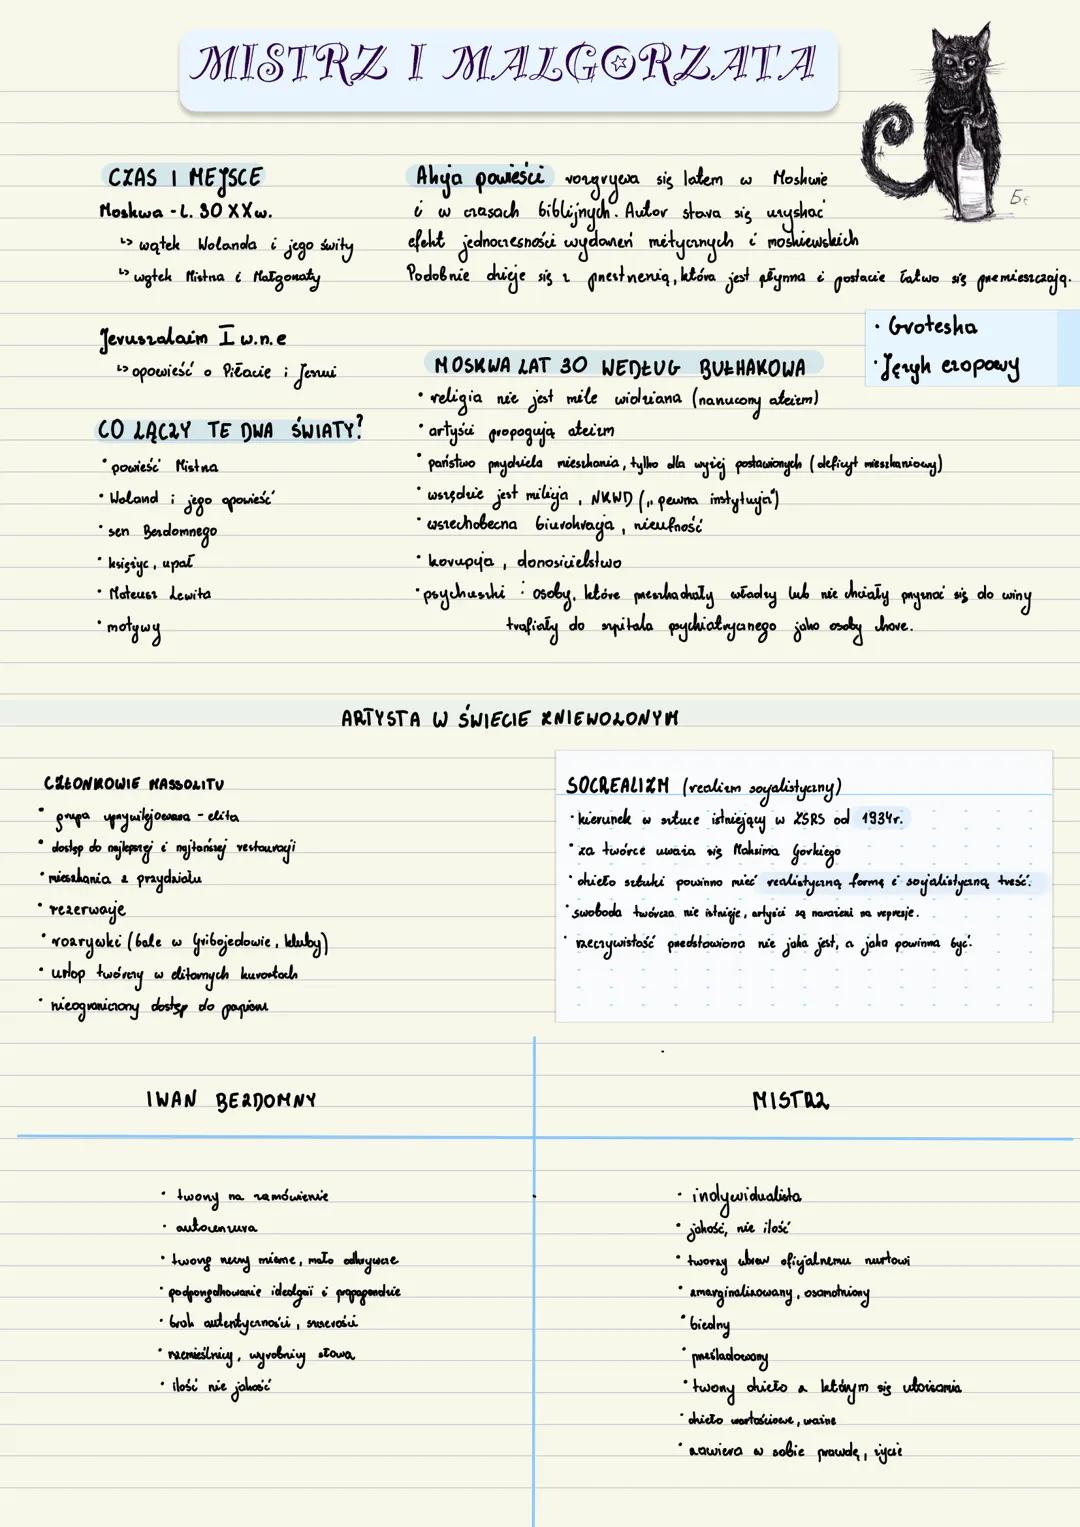 MISTRZ I MAŁGORZATA
CZAS I MIEJSCE
Moskwa - L. 30 XX w.
↳ wątek Wolanda i jego świty
↳ wątek Mistrza i Małgorzaty
Jeruszalaim I w.n.e
↳ opowieść o Piłacie i Jeszui
CO ŁĄCZY TE DWA ŚWIATY?
• powieść Mistrza
• Woland i jego opowieść
• sen Bezdomnego
• księżyc, upał
• Mateusz Lewita
• motywy
Akcja powieści rozgrywa się latem w Moskwie
i w czasach biblijnych. Autor stara się uzyskać
efekt jednoczesności wydarzeń mitycznych i moskiewskich
Podobnie dzieje się z przestrzenią, która jest płynna i postacie łatwo się przemieszczają.
• Groteska
• Język ezopowy
MOSKWA LAT 30 WEDŁUG BUŁHAKOWA
• religia nie jest mile widziana (narzucony ateizm)
• artyści propogują ateizm
• państwo przydziela mieszkania, tylko dla wyżej postawionych (deficyt mieszkaniowy)
• wszędzie jest milicja, NKWD („pewna instytucja")
• wszechobecna biurokracja, nieufność
• korupcja, donosicielstwo
• psychuszki: osoby, które przeszkadzały władzy lub nie chciały przyznać się do winy
trafiały do szpitala psychiatrycznego jako osoby chore.
ARTYSTA W ŚWIECIE ZNIEWOLONYM
CZŁONKOWIE MASSOLITU
• grupa uprzywilejowana - elita
• dostęp do najlepszej i najtańszej restauracji
• mieszkania z przydziału
• rezerwacje
• rozrywki (bale w Gribojedowie, kluby)
• urlop twórczy w elitarnych kurortach
• nieograniczony dostęp do papieru
SOCREALIZM (realizm socjalistyczny)
• kierunek w sztuce istniejący w ZSRS od 1934r.
• za twórce uważa się Maksima Gorkiego
• dzieło sztuki powinno mieć realistyczną formę i socjalistyczną treść.
• swoboda twórcza nie istnieje, artyści są narażeni na represje.
• rzeczywistość przedstawiona nie jaka jest, a jaka powinna być.
IWAN BEZDOMNY
• tworzy na zamówienie
• autocenzura
• tworzy rzeczy mierne, mało odkrywcze
• podporządkowanie ideologii i propagandzie
• brak autentyczności, szczerości
• rzemieślnicy, wyrobnicy słowa
• ilość nie jakość
MISTRZ
• indywidualista
• jakość, nie ilość
• tworzy wbrew oficjalnemu nurtowi
• zmarginalizowany, osamotniony
• biedny
• prześladowany
• tworzy dzieło z którym się utożsamia
• dzieło wartościowe, ważne
• zawiera w sobie prawdę, życie